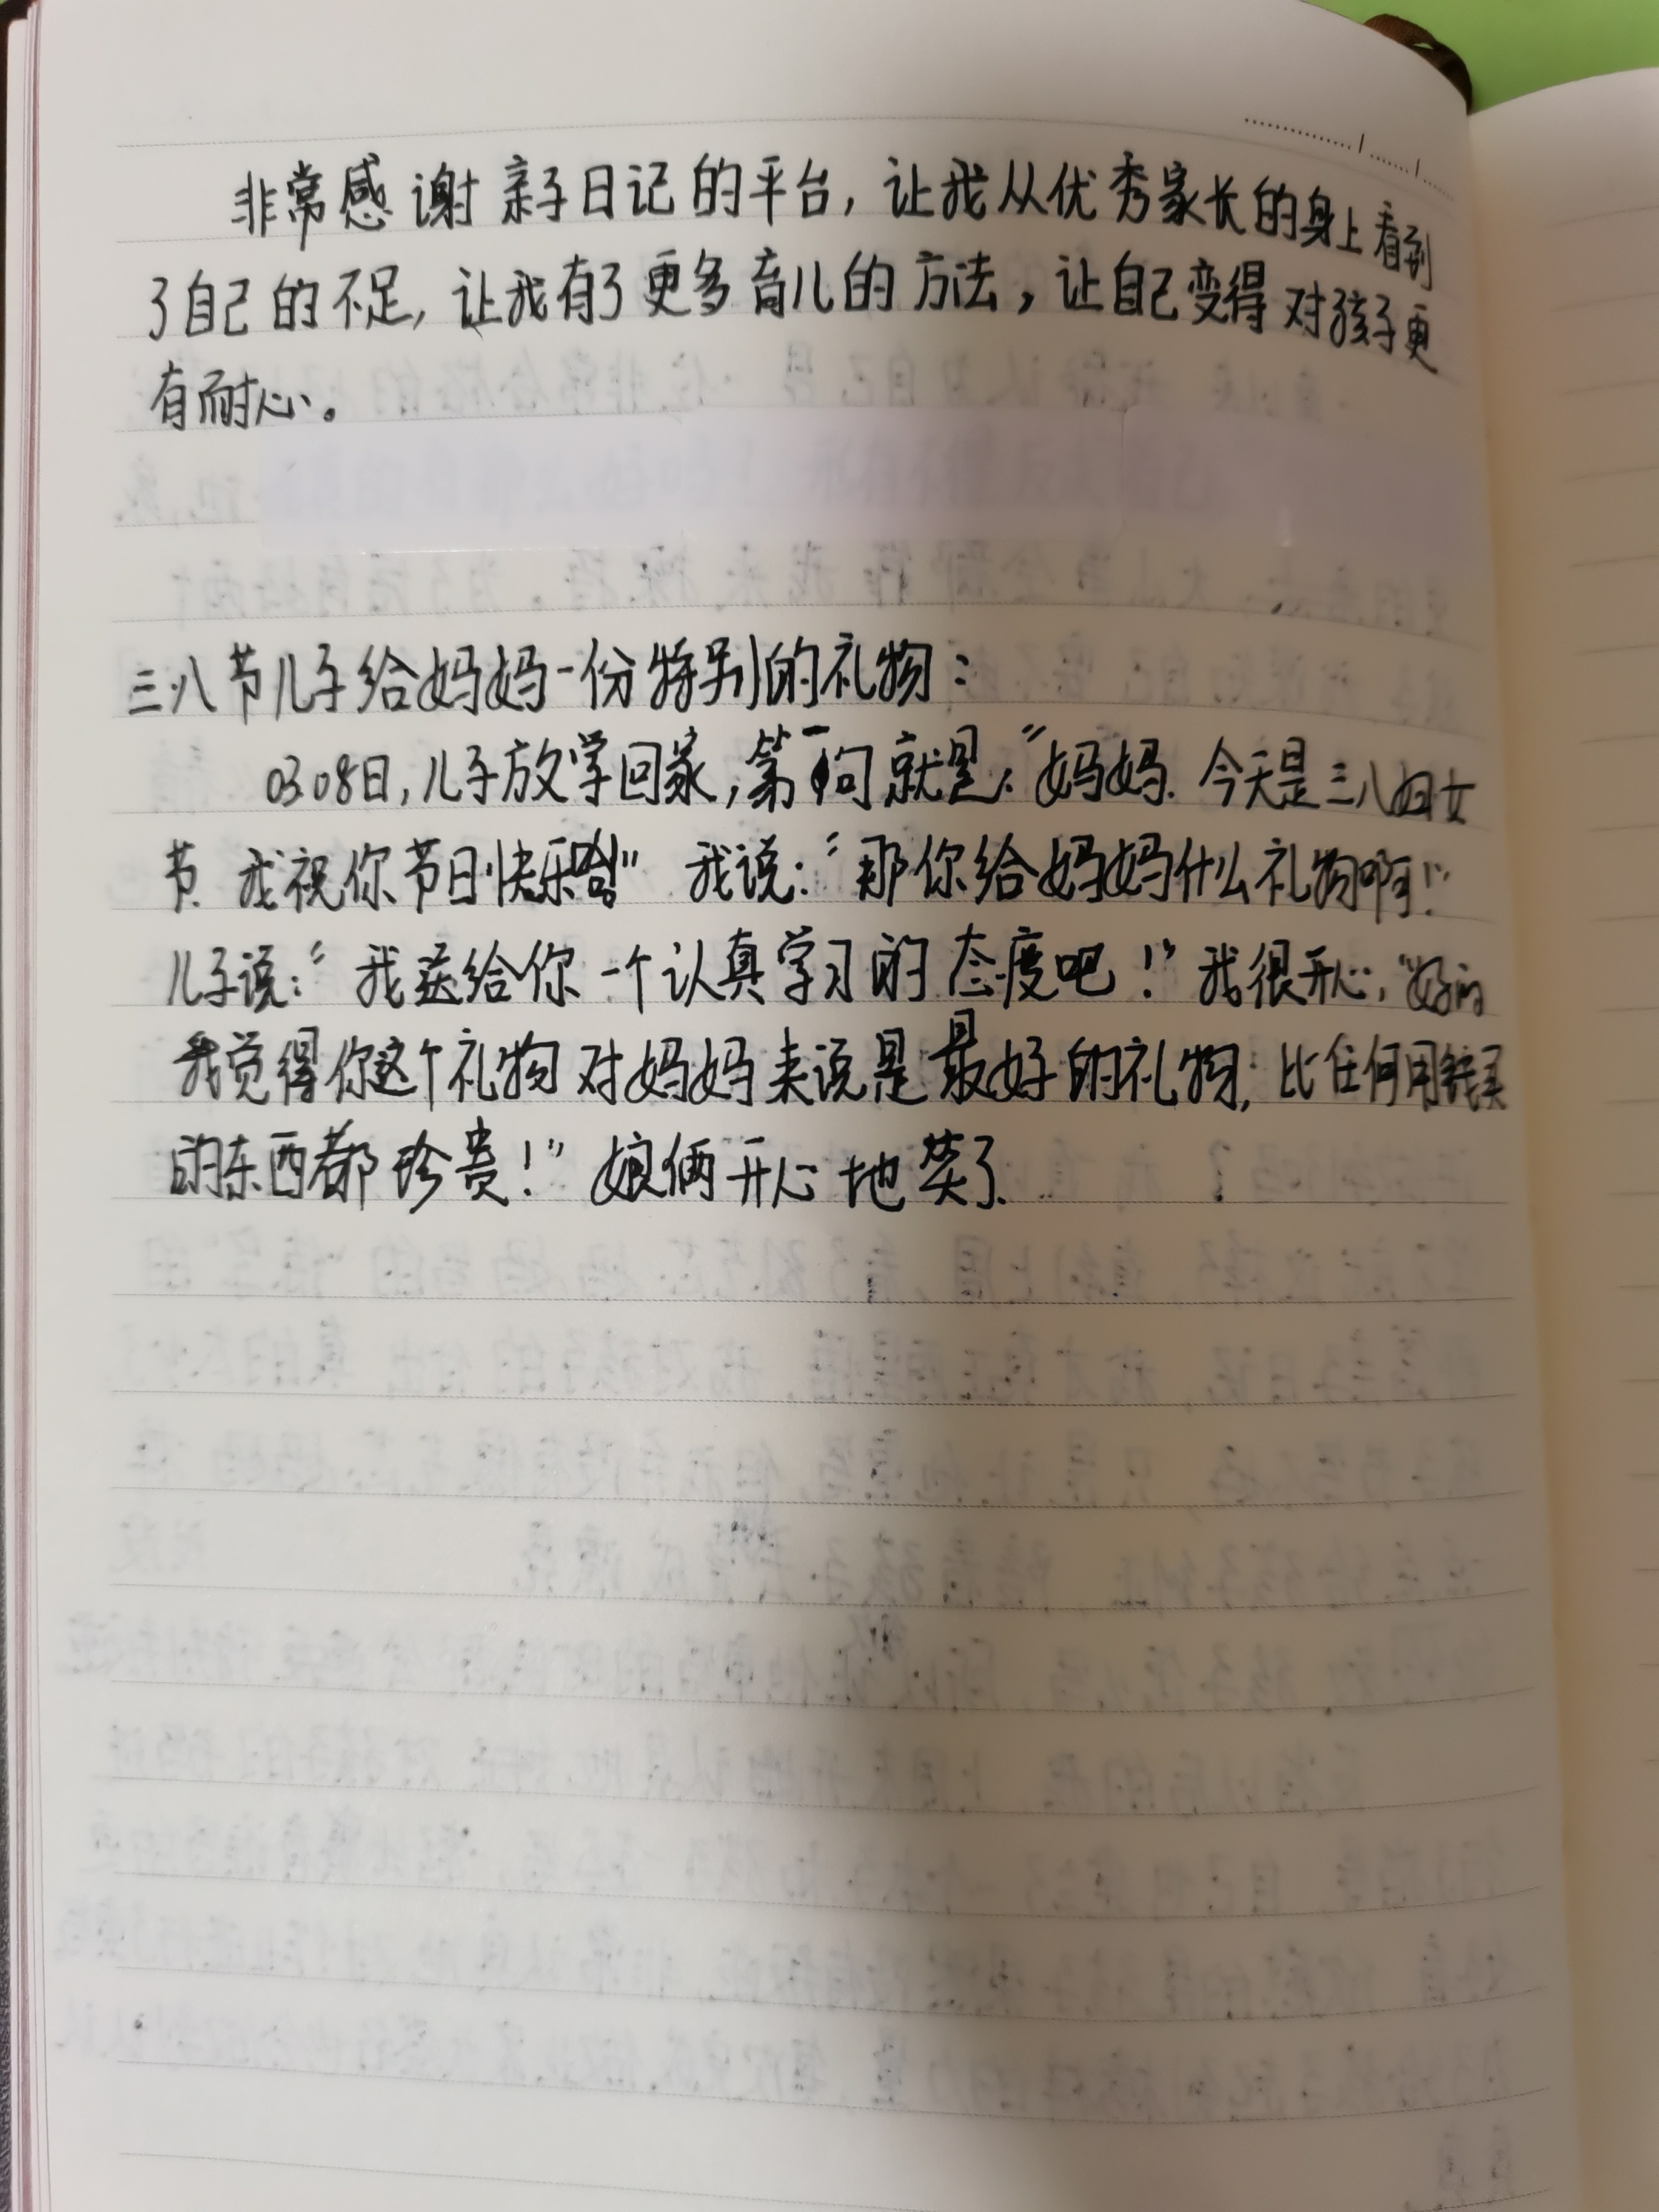 非常感谢亲子日记的平台，让我从优秀家长的身上看到
了自己的不足，让我有了更多育儿的方法，让自己变得对孩子更
有耐心。
三八节儿子给妈妈一份特别的礼物：
03.08日，儿子放学回家，第一句就是：“妈妈.今天是三八妇女
节.我祝你节日快乐哈!”我说：“那你给妈妈什么礼物啊!”
儿子说：“我送给你一个认真学习的态度吧！”我很开心，“好的
我觉得你这个礼物对妈妈来说是最好的礼物，比任何用钱买
的东西都珍贵！”娘俩开心地笑了.